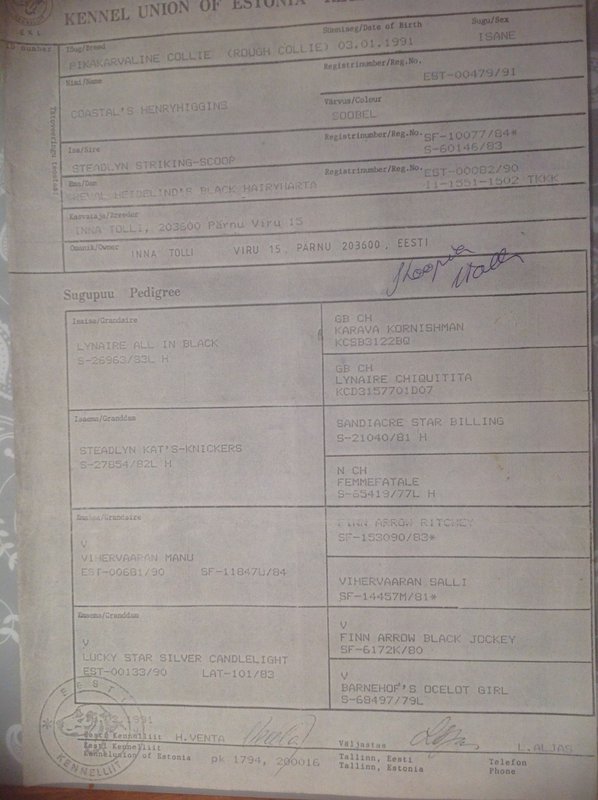 KENNEL UNION OF ESTONIA
EKL
Tõug/Breed
PIKAKARVALINE COLLIE (ROUGH COLLIE)
Sünniaeg/Date of Birth
03.01.1991
Sugu/Sex
ISANE
Nimi/Name
COASTAL'S HENRYHIGGINS
Registrinumber/Reg.No.
EST-00479/91
Värvus/Colour
SOOBEL
Isa/Sire
STEADLYN STRIKING-SCOOP
Registrinumber/Reg.No. SF-10077/84*
S-60146/83
Ema/Dam
REVAL HEIDELIND'S BLACK HAIRYHARTA
Registrinumber/Reg.No. EST-00082/90
11-1551-1502 TKKK
Kasvataja/Breeder
INNA TOLLI, 203600 Pärnu Viru 15
Omanik/Owner INNA TOLLI VIRU 15, PÄRNU 203600, EESTI
Sugupuu Pedigree
Isaisa/Grandsire
LYNAIRE ALL IN BLACK
S-26963/83L H
GB CH
KARAVA KORNISHMAN
KCSB3122BQ
GB CH
LYNAIRE CHIQUITITA
KCD3157701D07
Isaema/Granddam
STEADLYN KAT'S-KNICKERS
S-27854/82L H
SANDIACRE STAR BILLING
S-21040/81 H
N CH
FEMMEFATALE
S-65419/77L H
Emaisa/Grandsire
V
VIHERVAARAN MANU
EST-00681/90 SF-11847U/84
FINN ARROW RITCHEY
SF-153090/83*
VIHERVAARAN SALLI
SF-14457M/81*
Emaema/Granddam
V
LUCKY STAR SILVER CANDLELIGHT
EST-00133/90 LAT-101/83
V
FINN ARROW BLACK JOCKEY
SF-6172K/80
V
BARNEHOF'S OCELOT GIRL
S-68497/79L
EESTI KENNELLIIT
1991
Eesti Kennelliit H.VENTA
Väljastas
L.ALJAS
Eesti Kennelliit
Kennelunion of Estonia
pk 1794, 200016
Tallinn, Eesti
Tallinn, Estonia
Telefon
Phone